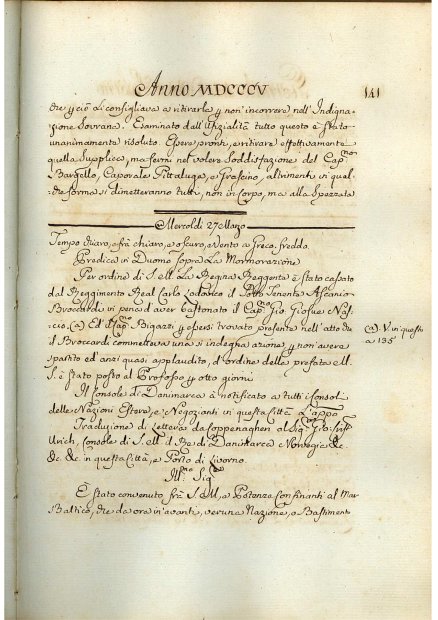 Anno MDCCCV 141
che p ciò li consigliava a ritirarla p non incorrere nell'Indigna-
zione Sovrana. Esaminato dall'Ufizialità tutto questo è stato
unanimamente risoluto Essere pronti, a ritirare effettivamente
quella Supplica, ma fermi nel volere Soddisfazione del Cap.no
Bargello, Caporale Pittaluga, e Grascino, altrimenti in qual-
che forma si dimetteranno tutti, non in Corpo, ma alla Spezzata
Mercoldì 27 Marzo
Tempo chiaro, e frà chiaro, e oscuro, e Vento a Greco. freddo.
Predica in Duomo Sopra La Mormorazione
Per ordine di S. M. La Regina Reggente è stato cassato
dal Reggimento Real Carlo Lodovico il Sotto Tenente Ascanio
Broccardi in pena d'aver bastonato il Cap. Gio Giosue Nas-
cio. (a) Ed il Cap. Bigazzi p essersi trovato presente nell'atto che
il Broccardi commetteva una sì indegna azione p non avere
sparito ed anzi quasi applaudito, d'ordine della prefata M.
S. è stato posto al Profosso p otto giorni
(a) V in questo
a 135
Il Console di Danimarca à notificato a tutti i Consol
delle Nazioni Estere, e Negozianti in questa Città L'appo
Traduzione di Lettera da Coppenaghen al Sig. Gio:
Ulrich, Console di S. M. il Re di Danimarca e Norvegia &c
&c. &c. in questa Città, e Porto di Livorno.
Ill.mo Sig.re
È Stato convenuto frà S. M., e Potenze Confinanti al Mar
Baltico, che da ora in'avanti, veruna Nazione, o Bastimento